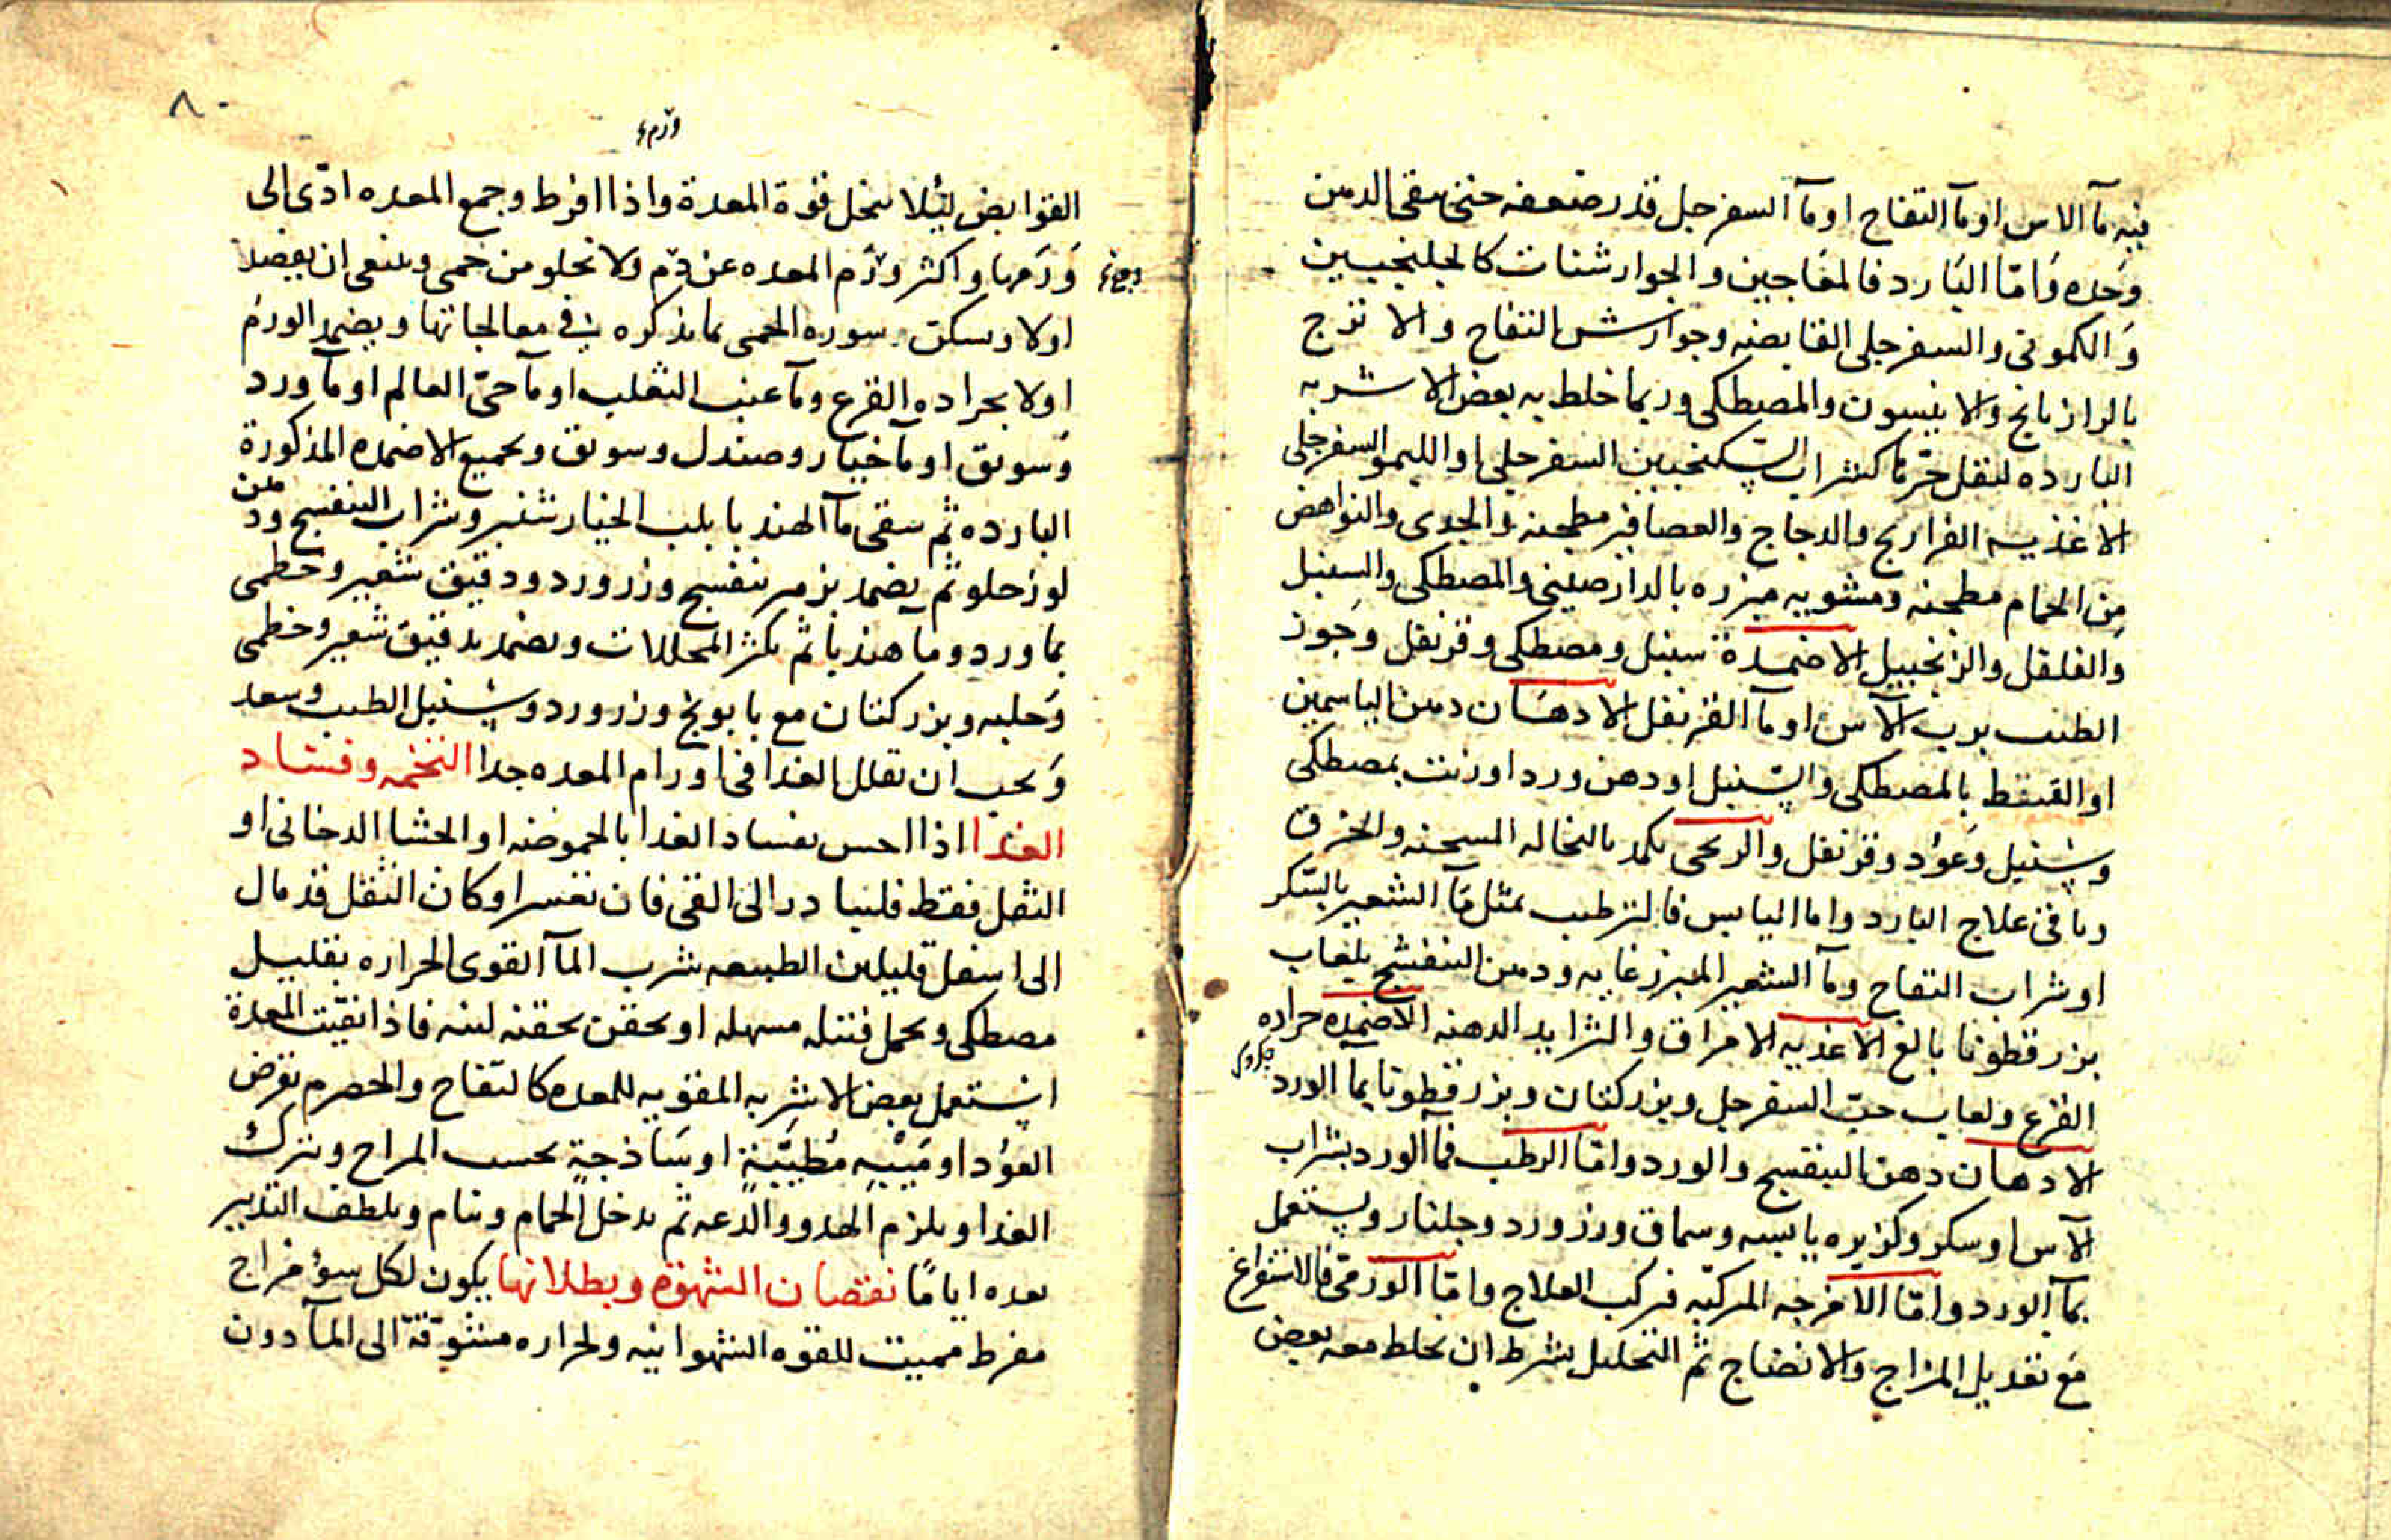 فيه مآ الاس او مآ التفاح او مآ السفرجل قدر ضعفه حتى يبقى الدهن
وحده وَامّا البَارد فالمعَاجين والجوارشنات كالجلنجبين
وَالكمونى والسفرجلى القابضه وجوارش التفاح والاترج
بالرازيانج والانيسون والمصطكى وربما خلط به بعض الاشربه
البارده لنقل حرّها كشراب السكنجبين السفرجلى او الليمو السفرجلى
الاغذيه الفراريج والدجاج والعصافير مطجنه والجدى والنواهض
من الحمام مطجنه ومشويه مبزره بالدارصينى والمصطكى والسنبل
وَالفلفل والزنجبيل الاضمدة سنبل ومصطكى وقرنفل وجَوز
الطيب برب الآس او مآ القرنفل الادهَان دهن الياسمين
او القسط بالمصطكى والسّنبل او دهن ورد او زيت بمصطكى
وسُنبل وَعوُد وقرنفل والريحى يكمد بالنخاله المسخنه والخرق
وما فى علاج البارد واما اليابس فالترطيب بمثل مآ الشعير بالسّكر
او شراب التفاح ومآ الشعير المبزر غايه ودهن البنفسج بلعاب
بزر قطونا بالغ الاغذيه الامراق والثرايد الدهنه الاضمده جراده
القرع ولعاب حبّ السفرجل وبزر كتان وبزر قطونا بمآ الورد
الادهان دهن البنفسج والورد وامّا الرطب فمآ الورد بشراب
الآس او سكر وكزبره يابسه وسماق وزر ورد وجلنار ويستعمل
بمآ الورد وامّا الامزجه المركبّه فركب العلاج وامّا الورمّى فالاستفراغ
مَع تعديل المزاج والانضاج ثم التحليل بشرط ان يخلط معه بعض
٨٠
ورم
القوابض ليُلا تنحل قوة المعدة واذا افرط وجع المعده ادّى الى
وجع
وَرَمها واكثر ورَم المعده عن دم ولا تخلو من حمى وينبغى ان يفصد
اولا وسكن سوره الحمى بما نذكره فى معالجاتها ويضمد الورَم
اولا بجراده القرع ومآ عنب الثعلب او مآ حىّ العالم او مآ ورد
وَسويق او مآ خيار وصندل وسويق وبجميع الاضمده المذكورة
البارده ثم سقى مآ الهندبا بلب الخيارشنبر وشراب البنفسج ودهن
لوز حلو ثم يضمد بزهر بنفسج وزر ورد ودقيق شعير وخطمى
بماورد وما هندبا ثم يكثر المحللات ويضمد بدقيق شعير وخطمى
وَحلبه وبزر كتان مع بابونج وزر ورد وسُنبل الطيب وسعد
وَيجب ان يقلل الغدا فى اورام المعده جدا التخمه وفساد
الغدا اذا احس بفساد الغدا بالحموضه او الجشا الدخانى او
الثقل فقط فليبادر الى القى فان تعسر او كان الثقل قد مال
الى اسفل قليلين الطبيعه شرب المآ القوى الحراره بقليل
مصطكى ويحمل فتيله مسهله او يحقن بحقنه لينه فاذا نقيّت المعدة
استعمل بعض الاشربه المقوّيه للمعده كالتفاح والحصرم بقرض
العوُد او مَيْبهِ مُطيّبَةٍ او سَاذجةٍ بحسب المزاج ويترك
الغدا ويلزم الهدو والدعه ثم يدخل الحمام وينام ويلطف التدبير
بعده ايامًا نقصان الشهوة وبطلانها يكون لكل سوُ مزاج
مفرط مميت للقوه الشهوانيه ولحراره مشوّقة الى المآ دون